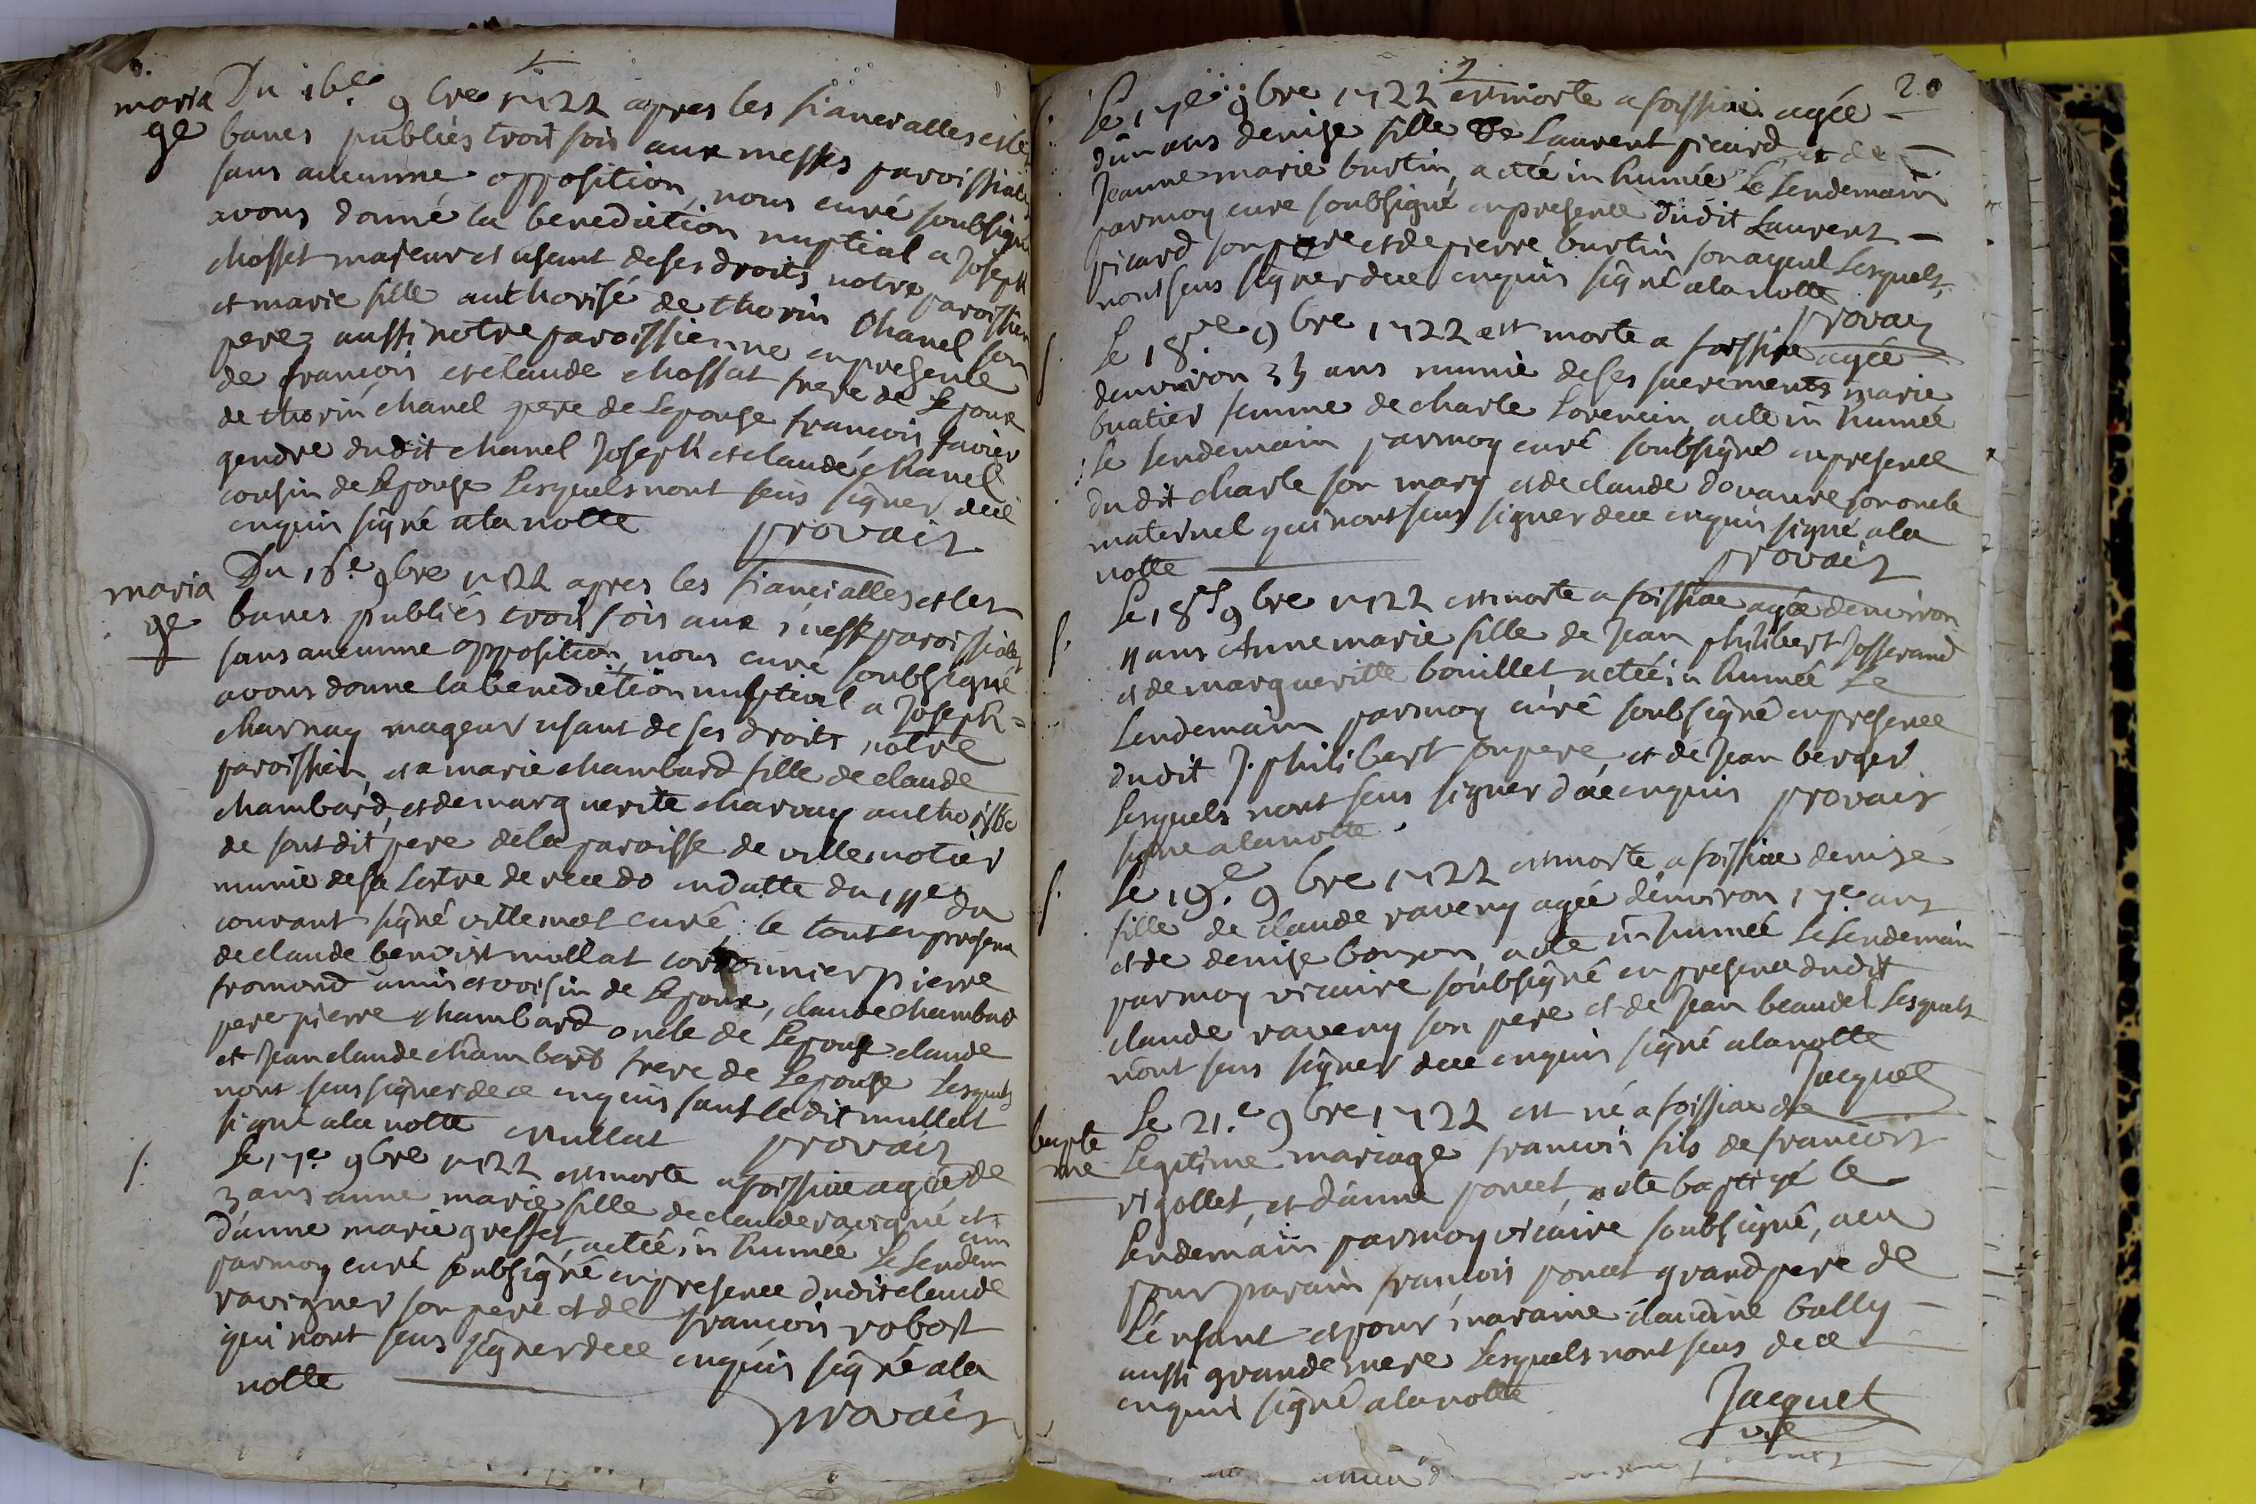 maria
ge
Du 16e 9bre 1722 apres les fiancialles et les
bancs publiés trois fois aux messes paroissiales
sans aucunne opposition, nous curé soubsigné
avons donné la benediction nuptial a Joseph
chosset majeur et usant de ses droits notre paroissien
et marie fille authorisé de thorin Chanel son
pere aussi notre paroissienne en presence
de françois et claude chossat frere de Lepoux
de thorin chanel pere de Lepouse françois favier
gendre dudit chanel Joseph et claude chanel
cousin de Lepouse Lesquels nont seus signer dece
enquis signé ala notte
provais
maria
ge
Du 16.e 9bre 1722 apres les fiancialles et les
bancs publiés trois fois aux mess paroissiales
sans aucunne opposition, nous curé soubsigné
avons donne la benediction nuptial a Joseph =
charnay mageur usant de ses droits notre
paroissien, et a marie chambard fille de claude
chambard, et de marguerite charnay authorisse
de sondit pere dela paroisse de villemotier
munie de sa Lettre de recedo en datte du 11e du
courant signé villemot curé le tout en presence
de claude benoist mullat cordonnier pierre
fromond amis et voisin de Lepoux, claude chambard
pere pierre chambard oncle de Lepouse claude
et Jean claude chambard frere de Lepouse Lesquels
nont seus signer de ce enquis sauf ledit mullat
signé ala notte Mullat provais
f.
Le 17e. 9bre 1722 est morte a foissiae agée de
3 ans anne marie fille de claude ravigné et
d'anne marie greffet actée in humée Le Lendem
ain
parmoy curé soubsigné en presence dudit claude
ravigner son pere et de françois robost
qui nont seus signer dece enquis signé ala
notte
provais
20
f.
Le 17e 9bre 1722 est morte a foissiae agée
dun ans denise fille de Laurent picard et de
Jeanne marie burtin, acté in humée Le Lendemain
parmoy cure soubsigné en presence dudit Laurent
picard son pere et de pierre burtin son ayeul Lesquels
nont seus signer dece enquis signé ala notte
provais
f.
Le 18e 9bre 1722 est morte a foissiae agée
denviron 35 ans munie de ses sacrements marie
buatier femme de charle Lorencin acte in humée
Le Lendemain parmoy curé soubsigné en presence
dudit charle son mary et de claude dovanne son oncle
maternel qui nont seus signer dece enquis signé ala
notte
provais
f.
Le 18e 9bre 1722 est morte a foissiae agée denviron
11 ans Anne marie fille de Jean philibert Josserand
et de marguerite bouillet actée in humée Le
Lendemain parmoy curé soubsigné en presence
dudit J. philibert son pere, et de Jean berger
Lesquels nont seus signer dece enquis provais
signe ala notte
f.
Le 19e. 9bre 1722 est morte a foissiae denise
fille de claude raveny agée denviron 17e ans
et de denise bonson acte in humée Le Lendemain
parmoy vicaire soubsigné en presence dudit
claude raveny son pere et de Jean beaudet Lesquels
nont seus signer dece enquis signé ala notte
Jacquet
bapte
me
Le 21.e 9bre 1722 est né a foissiae de
Legitime mariage francois fils de francois
rigollet, et d'anne poncet, acte baptizé le
Lendemain parmoy vicaire soubsigné, aeu
pour parain françois poncet grand pere de
L'enfant et pour maraine claudine bally
aussi grande mere Lesquels nont seus dece
enquis signé ala notte
Jacquet
vic